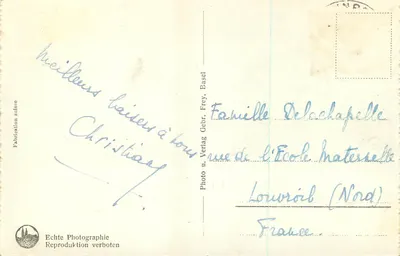 Meilleurs baisers à tous
Christiane
Fabrication suisse
Photo u. Verlag Gebr. Frey, Basel
Famille Delachapelle
rue de l'École Maternelle
Louvroib (Nord)
France.
Echte Photographie
Reproduktion verboten